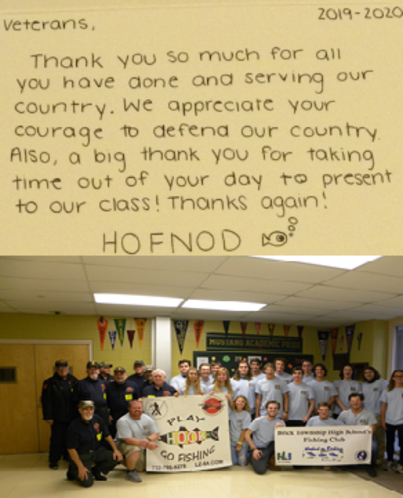 2019-2020
Veterans,
Thank you so much for all
you have done and serving our
country. We appreciate your
courage to defend our country.
Also, a big thank you for taking
time out of your day to present
to our class! Thanks again!
HOFNOD
MUSTANG ACADEMIC PRIDE
PLAY
HOOKY
GO FISHING
Brick Township High School's
Fishing Club
Hooked on Fishing